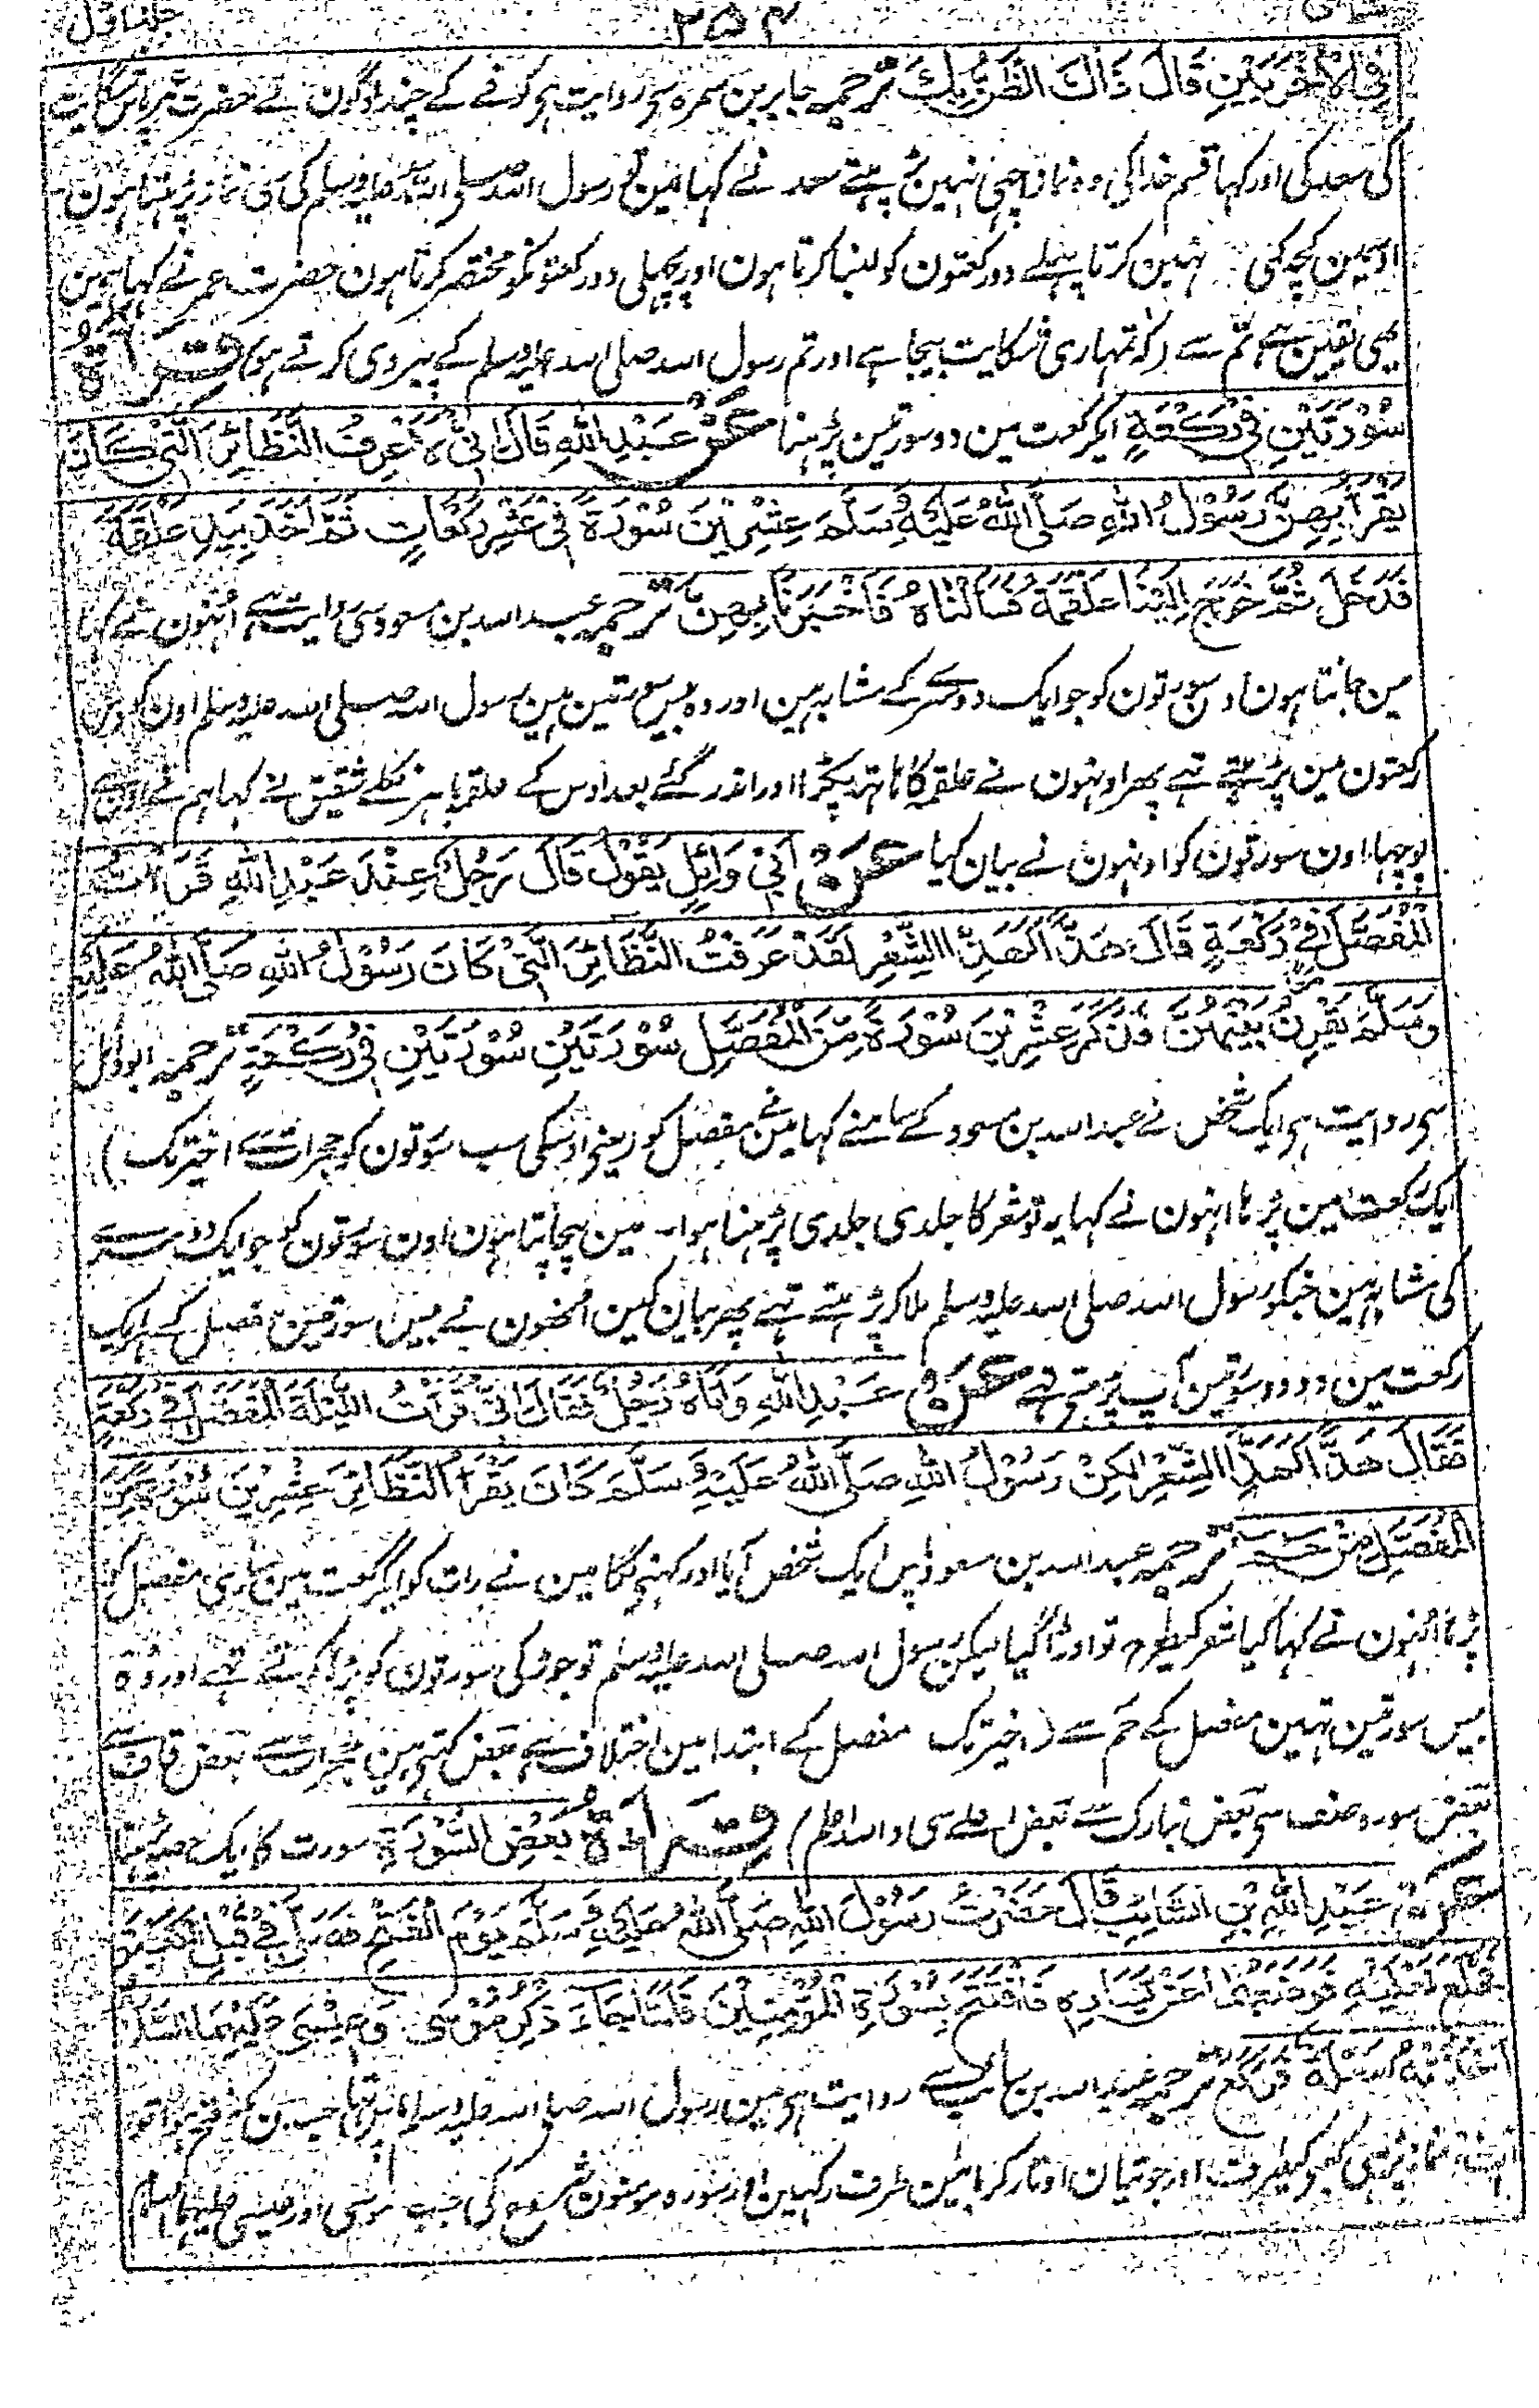 ۲۵۴ جلد اول
فِي الْأُخْرَيَيْنِ قَالَ ذَاكَ الظَّنُّ بِكَ ترجمہ جابر بن سمرہ سے روایت ہی کوفے کے چند لوگون نے حضرت عمر پاس شکایت
کی سعد کی اور کہا قسم خدا کی وہ نماز اچھی نہین پڑہتے سعد نے کہا مین تو رسول اللہ صلی اللہ علیہ وسلم کی سی نماز پڑہتا ہون
اوسمین کچھ کمی نہین کرتا پہلے دو رکعتون کو لنبا کرتا ہون اور پچہلی دو رکعتونکو مختصر کرتا ہون حضرت عمر نے کہا ہمین
یہی یقین ہے تم سے (کہ تمہاری شکایت بیجا ہے اور تم رسول اللہ صلی اللہ علیہ وسلم کے پیروی کرتے ہو) قِرَاءَةُ
سُوْرَتَيْنِ فِيْ رَكْعَةٍ ایک رکعت مین دو سورتین پڑہنا عَنْ عَبْدِ اللهِ قَالَ إِنِّي لَأَعْرِفُ النَّظَائِرَ الَّتِيْ كَانَ
يَقْرَأُ بِهِنَّ رَسُوْلُ اللهِ صَلَّى اللهُ عَلَيْهِ وَسَلَّمَ عِشْرِيْنَ سُوْرَةً فِيْ عَشْرِ رَكَعَاتٍ ثُمَّ أَخَذَ بِيَدِ عَلْقَمَةَ
فَدَخَلَ ثُمَّ خَرَجَ إِلَيْنَا عَلْقَمَةُ فَسَأَلْنَاهُ فَأَخْبَرَنَا بِهِنَّ ترجمہ عبد اللہ بن مسعود سی روایت ہے اُنہون نے کہا
مین جانتا ہون اون سورتون کو جو ایک دوسرے کے مشابہ ہین اور وہ بیس سورتین ہین رسول اللہ صلی اللہ علیہ وسلم اون کو دس
رکعتون مین پڑہتے تہے پھر اونہون نے علقمہ کا ہاتہ پکڑا اور اندر گئے بعد اوس کے علقمہ باہر نکلے شقیق نے کہا ہم نے اون سے
پوچہا اون سورتون کو اونہون نے بیان کیا عَنْ أَبِيْ وَائِلٍ يَقُوْلُ قَالَ رَجُلٌ عِنْدَ عَبْدِ اللهِ قَرَأْتُ
الْمُفَصَّلَ فِيْ رَكْعَةٍ قَالَ هَذًّا كَهَذِّ الشِّعْرِ لَقَدْ عَرَفْتُ النَّظَائِرَ الَّتِيْ كَانَ رَسُوْلُ اللهِ صَلَّى اللهُ عَلَيْهِ
وَسَلَّمَ يَقْرِنُ بَيْنَهُنَّ فَذَكَرَ عِشْرِيْنَ سُوْرَةً مِنَ الْمُفَصَّلِ سُوْرَتَيْنِ سُوْرَتَيْنِ فِيْ رَكْعَةٍ ترجمہ ابو وائل
سی روایت ہی ایک شخص نے عبد اللہ بن مسعود کے سامنے کہا مینے مفصل کو (یعنی اوسکی سب سورتون کو حجرات سے اخیر تک)
ایک رکعت مین پڑہا انہون نے کہا یہ تو شعر کا جلدی جلدی پڑہنا ہوا۔ مین پہچانتا ہون اون سورتون کو جو ایک دوسرے
کی مشابہ ہین جنکو رسول اللہ صلی اللہ علیہ وسلم ملا کر پڑہتے تہے پھر بیان کین انھون نے بیس سورتین مفصل کے ہر ایک
رکعت مین دو دو سورتین آپ پڑہتے تہے عَنْ عَبْدِ اللهِ وَأَتَاهُ رَجُلٌ فَقَالَ إِنِّيْ قَرَأْتُ اللَّيْلَةَ الْمُفَصَّلَ فِيْ رَكْعَةٍ
فَقَالَ هَذًّا كَهَذِّ الشِّعْرِ لكِنْ رَسُوْلُ اللهِ صَلَّى اللهُ عَلَيْهِ وَسَلَّمَ كَانَ يَقْرَأُ النَّظَائِرَ عِشْرِيْنَ سُوْرَةً مِنَ
الْمُفَصَّلِ مِنْ حٰمٓ ترجمہ عبد اللہ بن مسعود پاس ایک شخص آیا اور کہنی لگا مین نے رات کو ایک رکعت مین ساری مفصل کو
پڑہا اُنہون نے کہا کیا شعر کیطرح تو اوڑا گیا لیکن رسول اللہ صلی اللہ علیہ وسلم تو جوڑ کی سورتون کو پڑہا کرتے تہے اور وہ
بیس سورتین تہین مفصل کے حم سے (اخیر تک مفصل کے ابتدا مین اختلاف ہے بعض کہتی ہین حجرات سے بعض قاف سے
بعض سورہ صف سی بعض تبارک سے بعض اعلے سی واللہ اعلم) قِرَاءَةُ بَعْضِ السُّوْرَةِ سورت کا ایک حصہ پڑہنا
عَنْ عَبْدِ اللهِ بْنِ السَّائِبِ قَالَ حَضَرْتُ رَسُوْلَ اللهِ صَلَّى اللهُ عَلَيْهِ وَسَلَّمَ يَوْمَ الْفَتْحِ فَصَلَّى فِيْ قُبُلِ الْكَعْبَةِ
فَخَلَعَ نَعْلَيْهِ فَوَضَعَهُمَا عَنْ يَسَارِهِ فَافْتَتَحَ بِسُوْرَةِ الْمُؤْمِنِيْنَ فَلَمَّا جَاءَ ذِكْرُ مُوْسَى وَعِيْسَى عَلَيْهِمَا السَّلَامُ
أَخَذَتْهُ سَعْلَةٌ فَرَكَعَ ترجمہ عبد اللہ بن سائب سے روایت ہی مین رسول اللہ صلی اللہ علیہ وسلم پاس تہا جس دن مکہ فتح ہوا تو
آپنے نماز پڑہی کعبے کیطرف اور جوتیان اوتار کر بائین طرف رکہین اور سورہ مومنون شروع کی جب موسٰی اور عیسٰی علیہما السلام